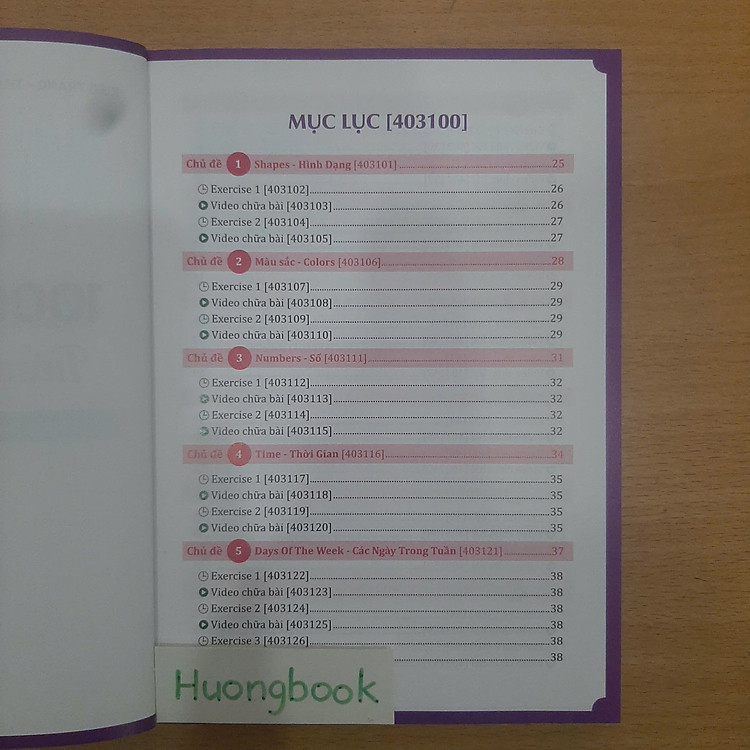 MỤC LỤC [403100]
Chủ đề 1 Shapes - Hình Dạng [403101] 25
Exercise 1 [403102] 26
Video chữa bài [403103] 26
Exercise 2 [403104] 27
Video chữa bài [403105] 27
Chủ đề 2 Màu sắc - Colors [403106] 28
Exercise 1 [403107] 29
Video chữa bài [403108] 29
Exercise 2 [403109] 29
Video chữa bài [403110] 29
Chủ đề 3 Numbers - Số [403111] 31
Exercise 1 [403112] 32
Video chữa bài [403113] 32
Exercise 2 [403114] 32
Video chữa bài [403115] 32
Chủ đề 4 Time - Thời Gian [403116] 34
Exercise 1 [403117] 35
Video chữa bài [403118] 35
Exercise 2 [403119] 35
Video chữa bài [403120] 35
Chủ đề 5 Days Of The Week - Các Ngày Trong Tuần [403121] 37
Exercise 1 [403122] 38
Video chữa bài [403123] 38
Exercise 2 [403124] 38
Video chữa bài [403125] 38
Exercise 3 [403126] 38
38
Huongbook